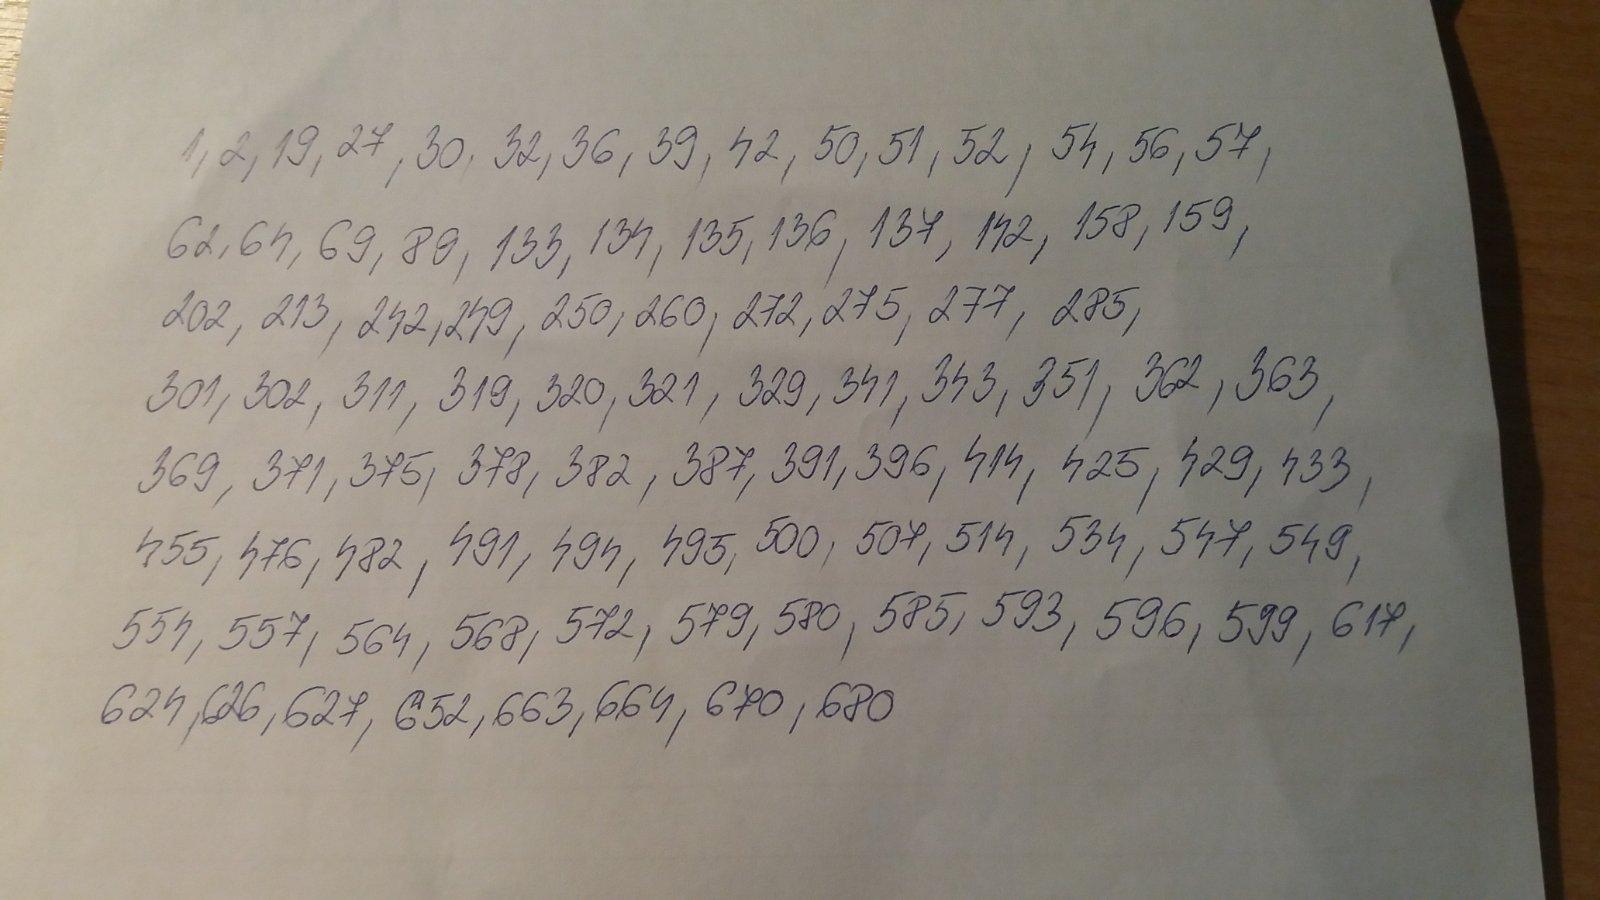 1, 2, 19, 27, 30, 32, 36, 39, 42, 50, 51, 52, 54, 56, 57,
62, 64, 69, 89, 133, 134, 135, 136, 137, 142, 158, 159,
202, 213, 242, 249, 250, 260, 272, 275, 277, 285,
301, 302, 311, 319, 320, 321, 329, 341, 343, 351, 362, 363,
369, 371, 375, 378, 382, 387, 391, 396, 414, 425, 429, 433,
455, 476, 482, 491, 494, 495, 500, 507, 514, 534, 547, 549,
554, 557, 564, 568, 572, 579, 580, 585, 593, 596, 599, 617,
624, 626, 627, 652, 663, 664, 670, 680